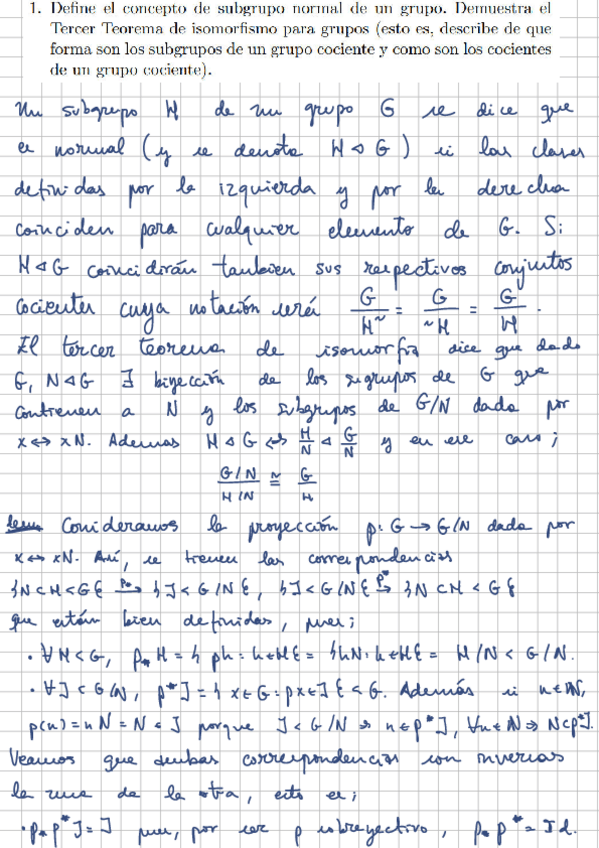 1. Define el concepto de subgrupo normal de un grupo. Demuestra el
Tercer Teorema de isomorfismo para grupos (esto es, describe de que
forma son los subgrupos de un grupo cociente y como son los cocientes
de un grupo cociente).
Un subgrupo H de un grupo G se dice que
es normal (y se denota H ◁ G) si las clases
definidas por la izquierda y por la derecha
coinciden para cualquier elemento de G. Si
H ◁ G coincidirán tambien sus respectivos conjuntos
cocientes cuya notación será G/H~ = G/~H = G/H.
El tercer teorema de isomorfía dice que dado
G, N ◁ G ∃ biyección de los sugrupos de G que
contienen a N y los subgrupos de G/N dada por
x ↔ xN. Ademas H ◁ G ⇔ H/N ◁ G/N y en ese caso;
(G/N)/(H/N) ≅ G/H
Consideramos la proyección p: G → G/N dada por
x ↔ xN. Así, se tienen las correspondencias
{N ⊂ H < G} →^{p_*} {J < G/N}, {J < G/N} →^{p^*} {N ⊂ H < G}
que están bien definidas, pues;
· ∀H < G, p_* H = {ph : h ∈ H} = {hN : h ∈ H} = H/N < G/N.
· ∀J < G/N, p^* J = {x ∈ G : px ∈ J} < G. Además si n ∈ N,
p(n) = nN = N ∈ J porque J < G/N ⇒ n ∈ p^* J, ∀n ∈ N ⇒ N ⊂ p^* J.
Veamos que ambas correspondencias son inversas
la una de la otra, esto es;
· p_* p^* J = J pues, por ser p sobreyectivo, p_* p^* = Id.